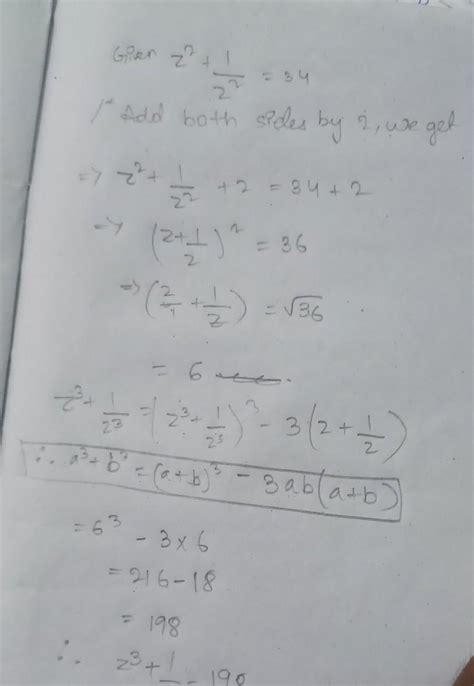 Given z² + 1/z² = 34
Add both sides by 2, we get
=> z² + 1/z² + 2 = 34 + 2
=> (z + 1/z)² = 36
=> (z + 1/z) = √36
= 6
z³ + 1/z³ = (z³ + 1/z³)³ - 3(z + 1/z)
∴ a³ + b³ = (a+b)³ - 3ab(a+b)
= 6³ - 3×6
= 216 - 18
= 198
∴ z³ + 1/ = 198